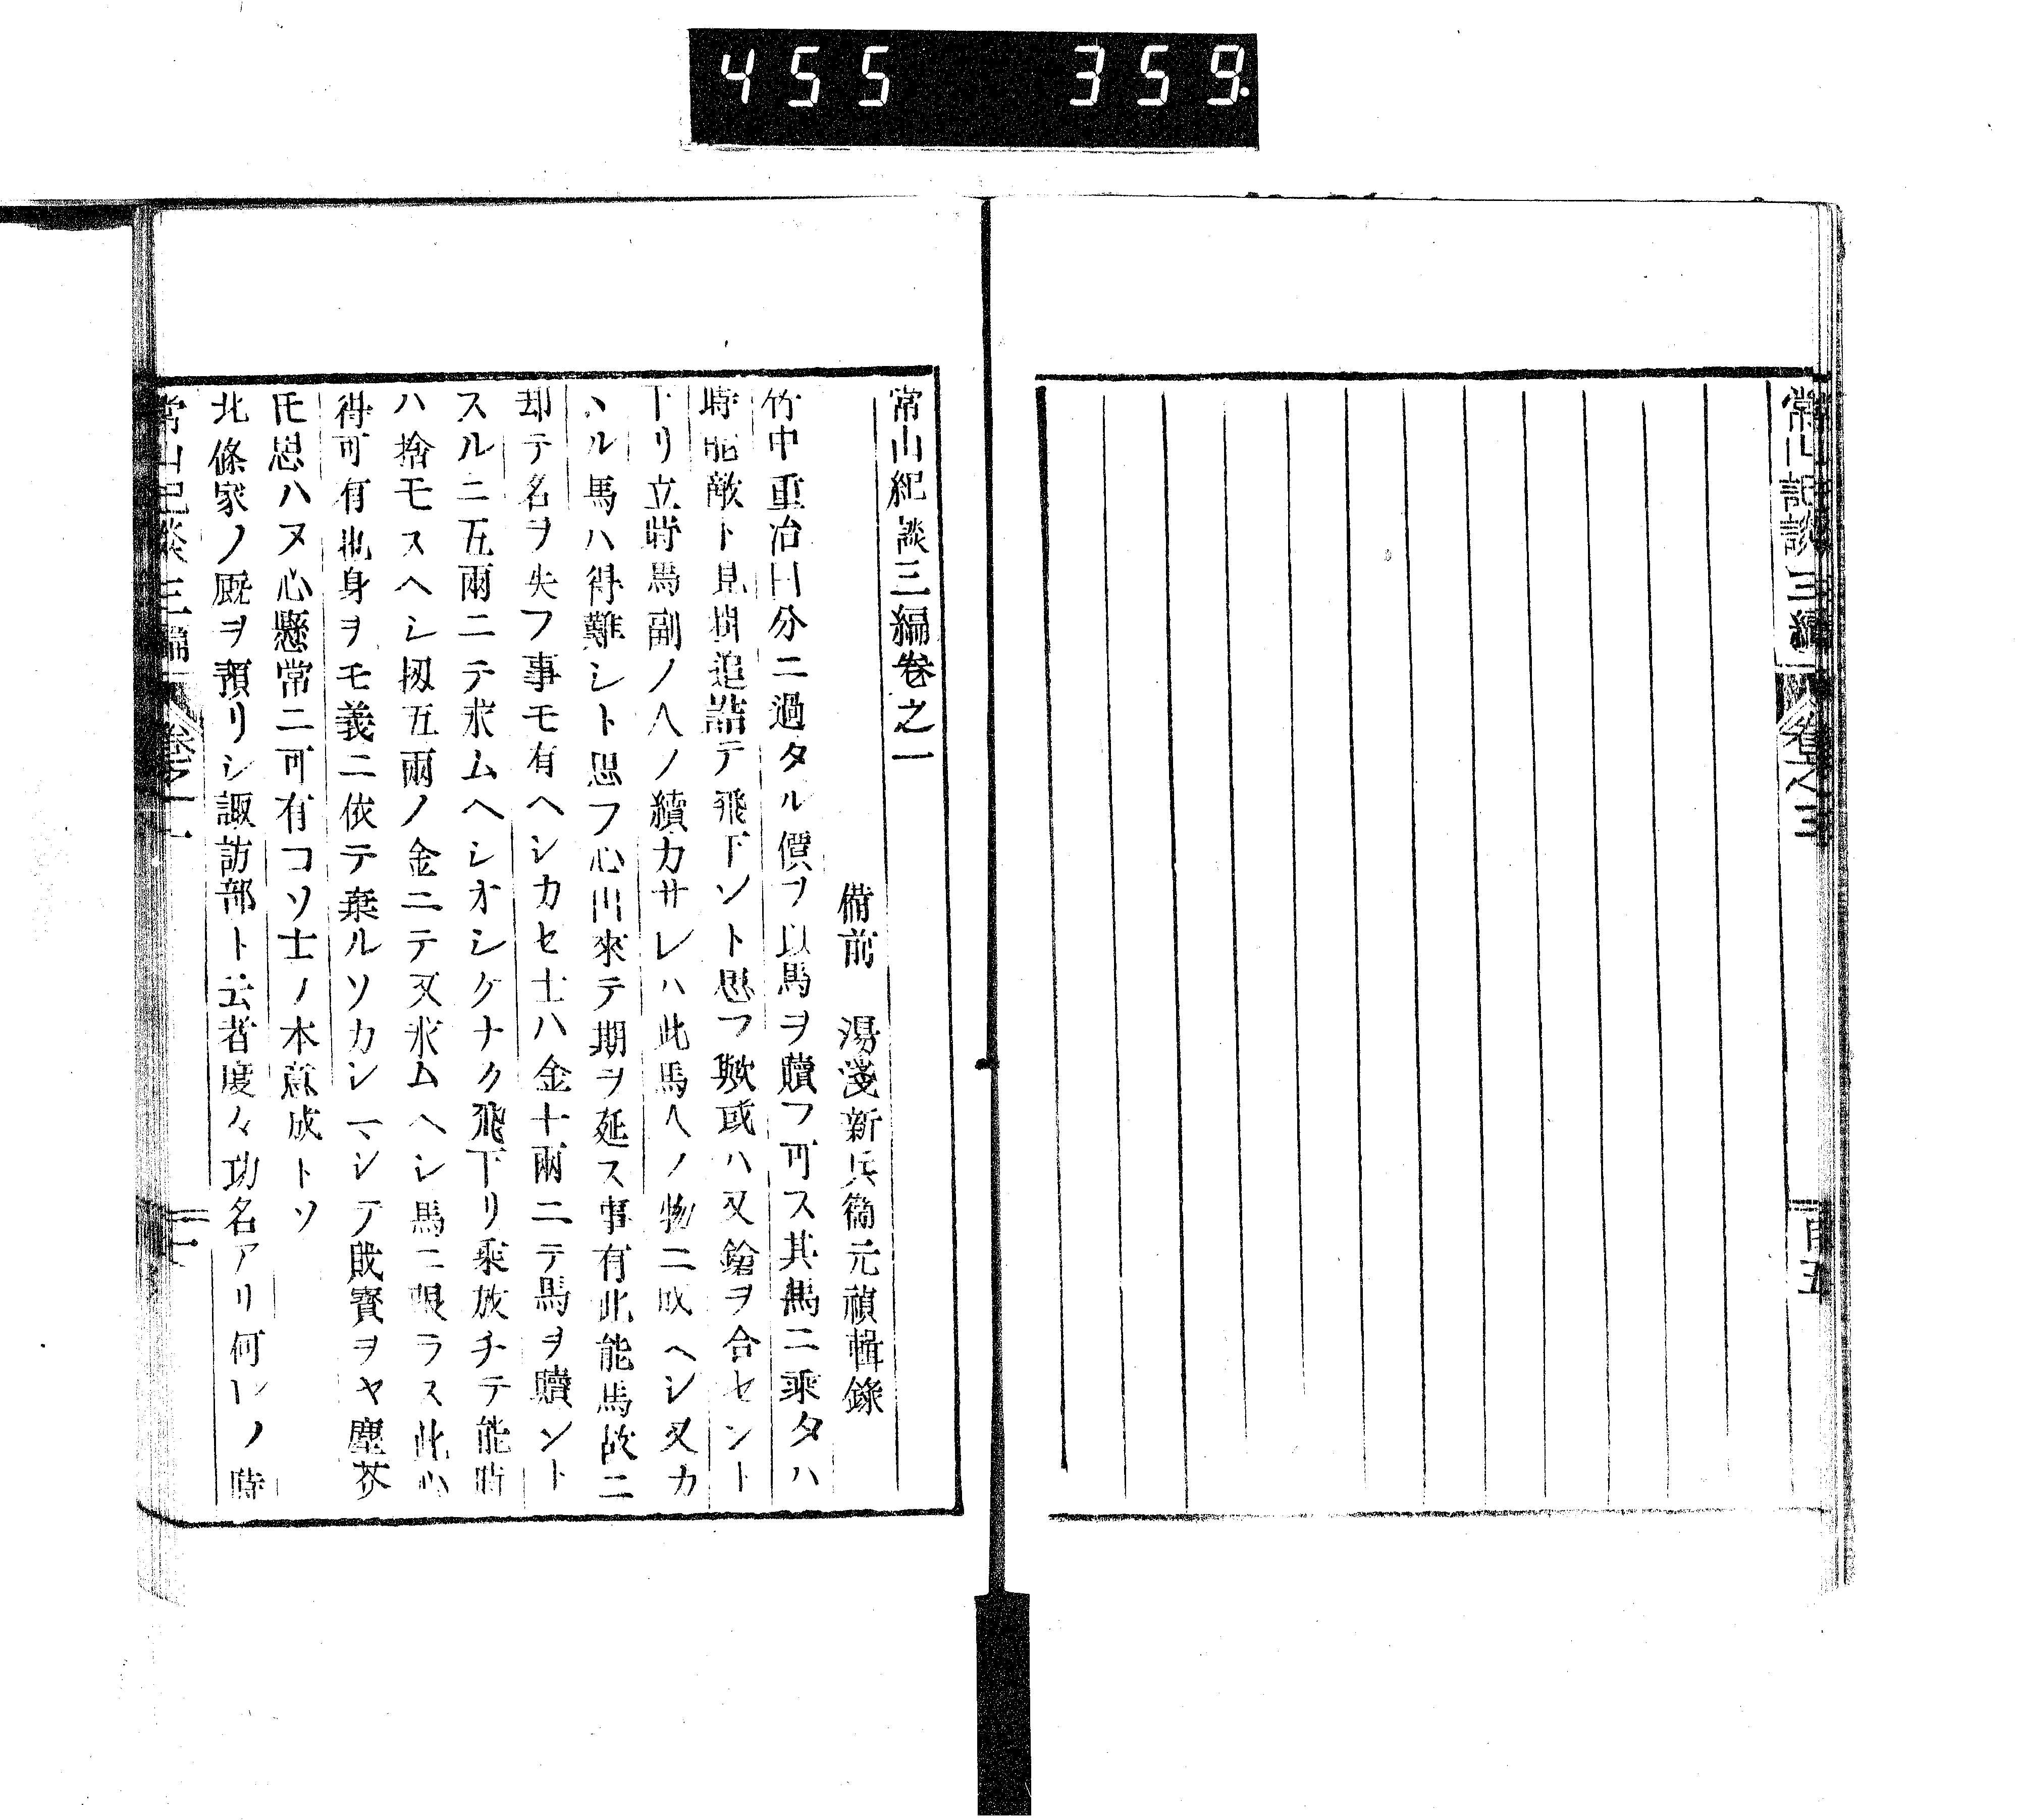 455 359
常山紀談三編 卷之三 百五
常山紀談三編卷之一
備前 湯淺新兵衞元禎輯錄
竹中重治曰分ニ過タル價ヲ以馬ヲ贖フ可ス其馬ニ乘タハ
時能敵ト見樹追詰テ飛下ント思フ歟或ハ又鎗ヲ合セント
下リ立時馬副ノ人ノ續カサレハ此馬人ノ物ニ成ヘシ又カ
ヽル馬ハ得難シト思フ心出來テ期ヲ延ス事有此能馬故ニ
却テ名ヲ失フ事モ有ヘシカセ士ハ金十兩ニテ馬ヲ贖ント
スルニ五兩ニテ求ムヘシオシケナク飛下リ乘放チテ能時
ハ捨モスヘシ扨五兩ノ金ニテ又求ムヘシ馬ニ限ラス此心
得可有也身ヲモ義ニ依テ棄ルソカシマシテ財寶ヲヤ塵芥
圧思ハヌ心懸常ニ可有コソ士ノ本意成トソ
北條家ノ厩ヲ預リシ諏訪部ト云者度々功名アリ何レノ時
常山紀談三編 卷之一 一